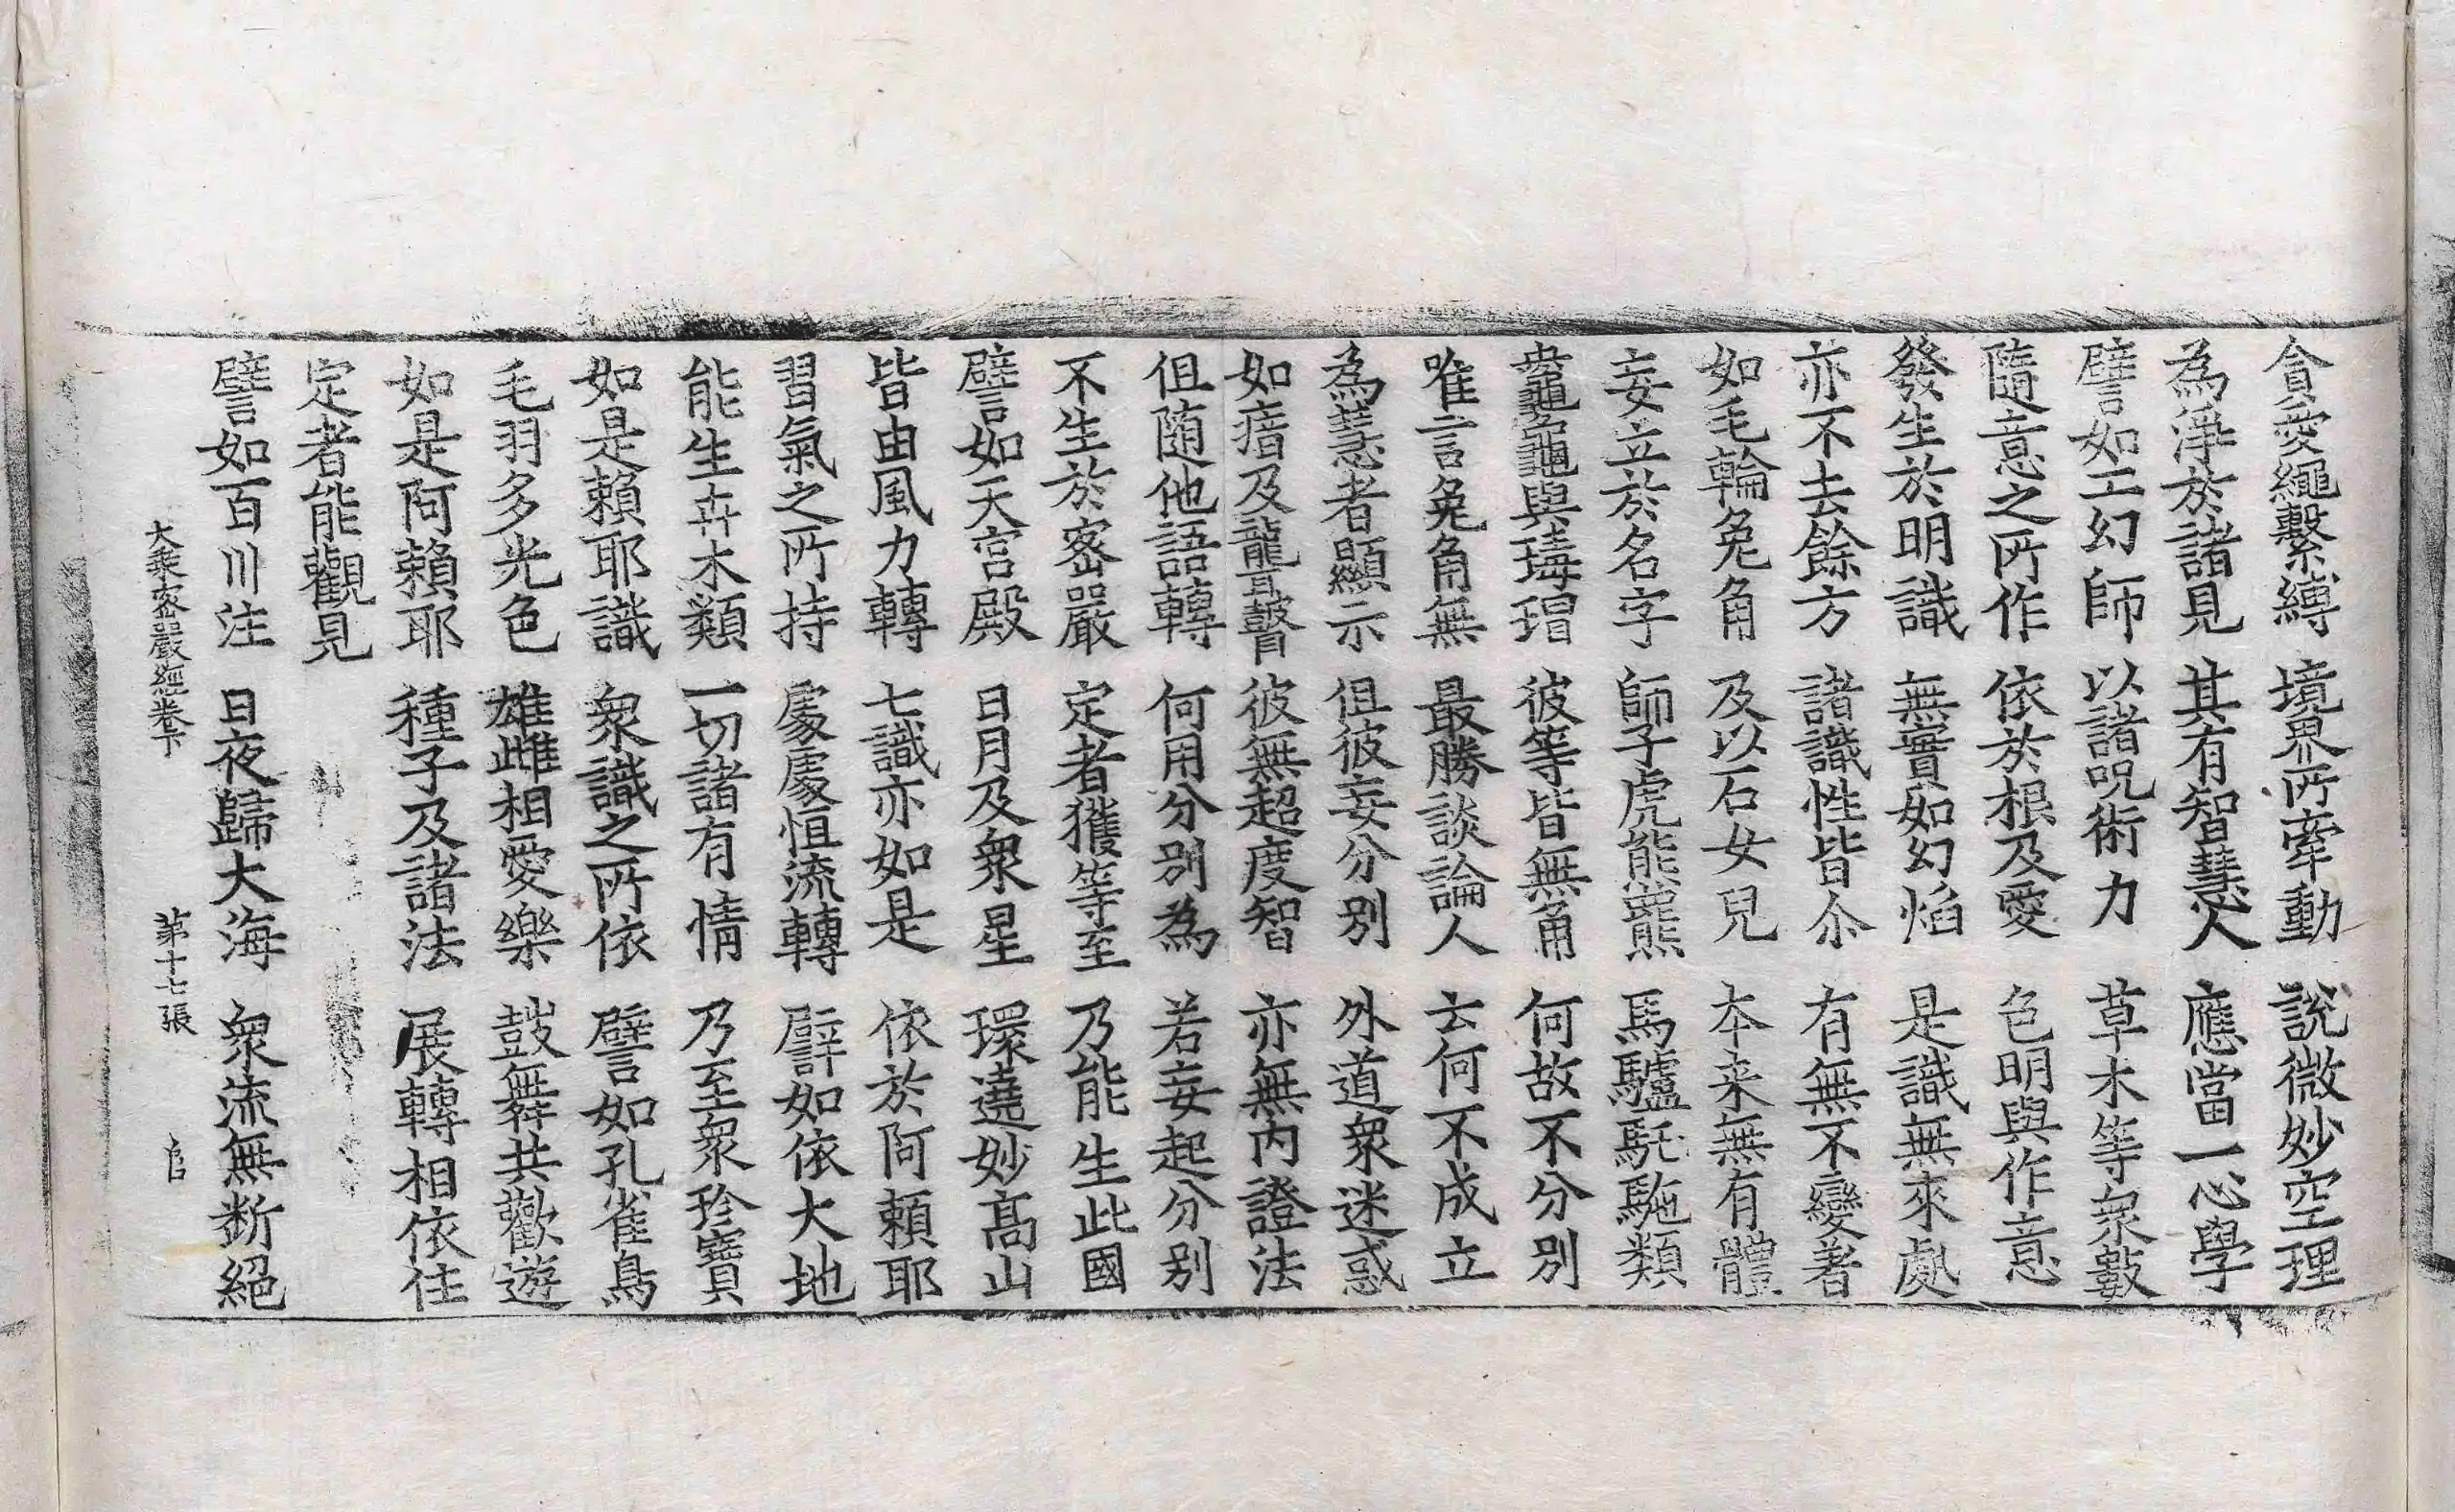 貪愛繩繫縛 境界所牽動 說微妙空理
為淨於諸見 其有智慧人 應當一心學
譬如工幻師 以諸呪術力 草木等衆數
隨意之所作 依於根及愛 色明與作意
發生於明識 無實如幻焰 是識無來處
亦不去餘方 諸識性皆尒 有無不變著
如毛輪兔角 及以石女兒 本来無有體
妄立於名字 師子虎熊羆 馬驢駞駝類
黿龜與瑇瑁 彼等皆無角 何故不分別
唯言兔角無 最勝談論人 云何不成立
為慧者顯示 但彼妄分別 外道衆迷惑
如瘖及聾瞽 彼無超度智 亦無內證法
但随他語轉 何用分別為 若妄起分別
不生於密嚴 定者獲等至 乃能生此國
譬如天宮殿 日月及衆星 環遶妙高山
皆由風力轉 七識亦如是 依於阿賴耶
習氣之所持 處處恒流轉 譬如依大地
能生卉木類 一切諸有情 乃至衆珍寶
如是賴耶識 衆識之所依 譬如孔雀鳥
毛羽多光色 雄雌相愛樂 鼓舞共歡遊
如是阿賴耶 種子及諸法 展轉相依住
定者能觀見
譬如百川注 日夜歸大海 衆流無断絕
大乘密嚴經卷下 第十七張